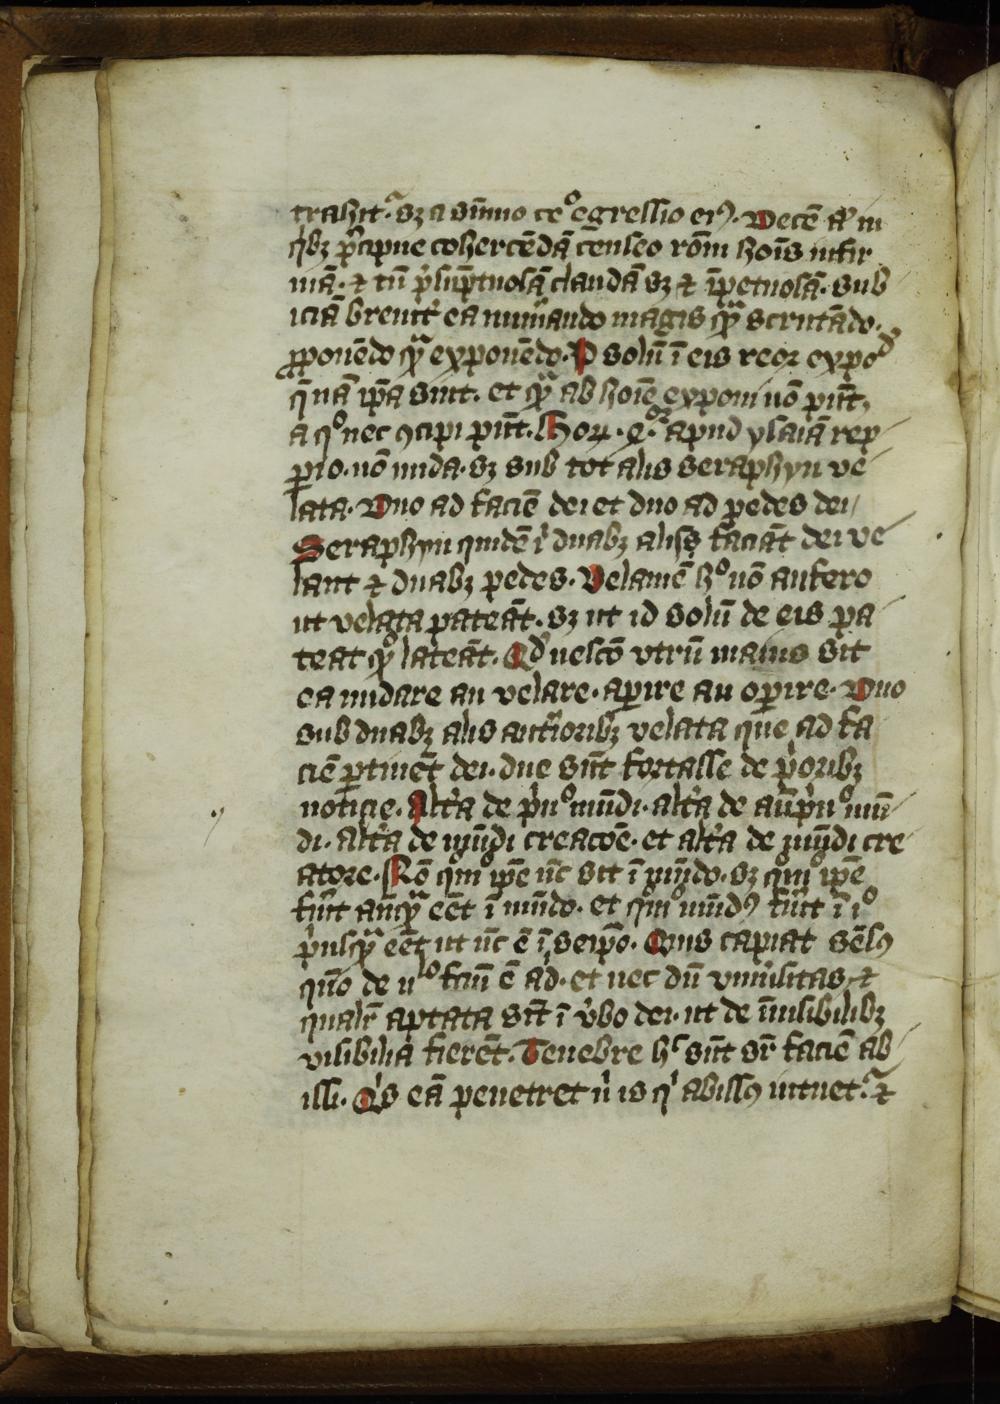 trahit᷑. sꝫ a sūmo celo egressio eiꝰ. Decē aūt in
qͥbꝫ p̄cipue cohercēdā cēnseo rōm hoīs infir
mā. ⁊ tū p̄sūptuosā claudā sꝫ ⁊ īpetuosā. sub
iciā breuiť ea numāndo magis qͣꝫ scrutādo.
ꝓponēdo qͣꝫ exponēdo. solū ī eis reor expoᵈ
q̄nā ip̄a sint. et qͣꝫ ab hoīe exponi nō pn̄t,
a qͦ nec ꝯcipi pn̄t. Horꝝ. apud ysaiā rep
ꝑio. nō nuda. sꝫ sub tot alis seraphyn ve
lata. Duo ad faciē dei et duo ad pedes dei
Seraphyn quidē ī duabꝫ alis faciāt dei ve
lant ⁊ duabꝫ pedes. Velamē hͦ nō aufero
ut velata pateāt. sꝫ ut id solū de eis pa
teat qͦ lateāt. Qd̓ nescō vtrū maius sit
ea nudare an velare. aꝑire an oꝑire. Duo
sub duabꝫ alis anťioribꝫ velata que ad fa
ciē ꝑtinēt dei. due sūt fortasse de p̓oribꝫ
noticie. Alťa de p̓nͦ mūdi. alťa de aūp̓nͦ mū
di. alťa de mūdi creacōe. et alťa de mūdi cre
atore. Rō qͦm ip̄e nc̄ sit ī mūdo. sꝫ qͦm ip̄e
fūit anqͣꝫ eēt ī mūdo. et qͦm mūdꝰ fūit ī iͦ
p̓usqͣꝫ eēt ut nc̄ ē ī seip̄o. Quis capiat sēsꝰ
qūo de nͦ fcm̄ ē ad̓. et nec dū vniuͥsitas ⁊
qualť aptata sūt ī v̓bo dei. ut de īuisibilibꝫ
visibilia fierēt. Tenebre hͨ sūt sr̄ faciē ab
issi. Qͥs eā penetret ň is qͥ abissꝰ intuet᷑. ⁊